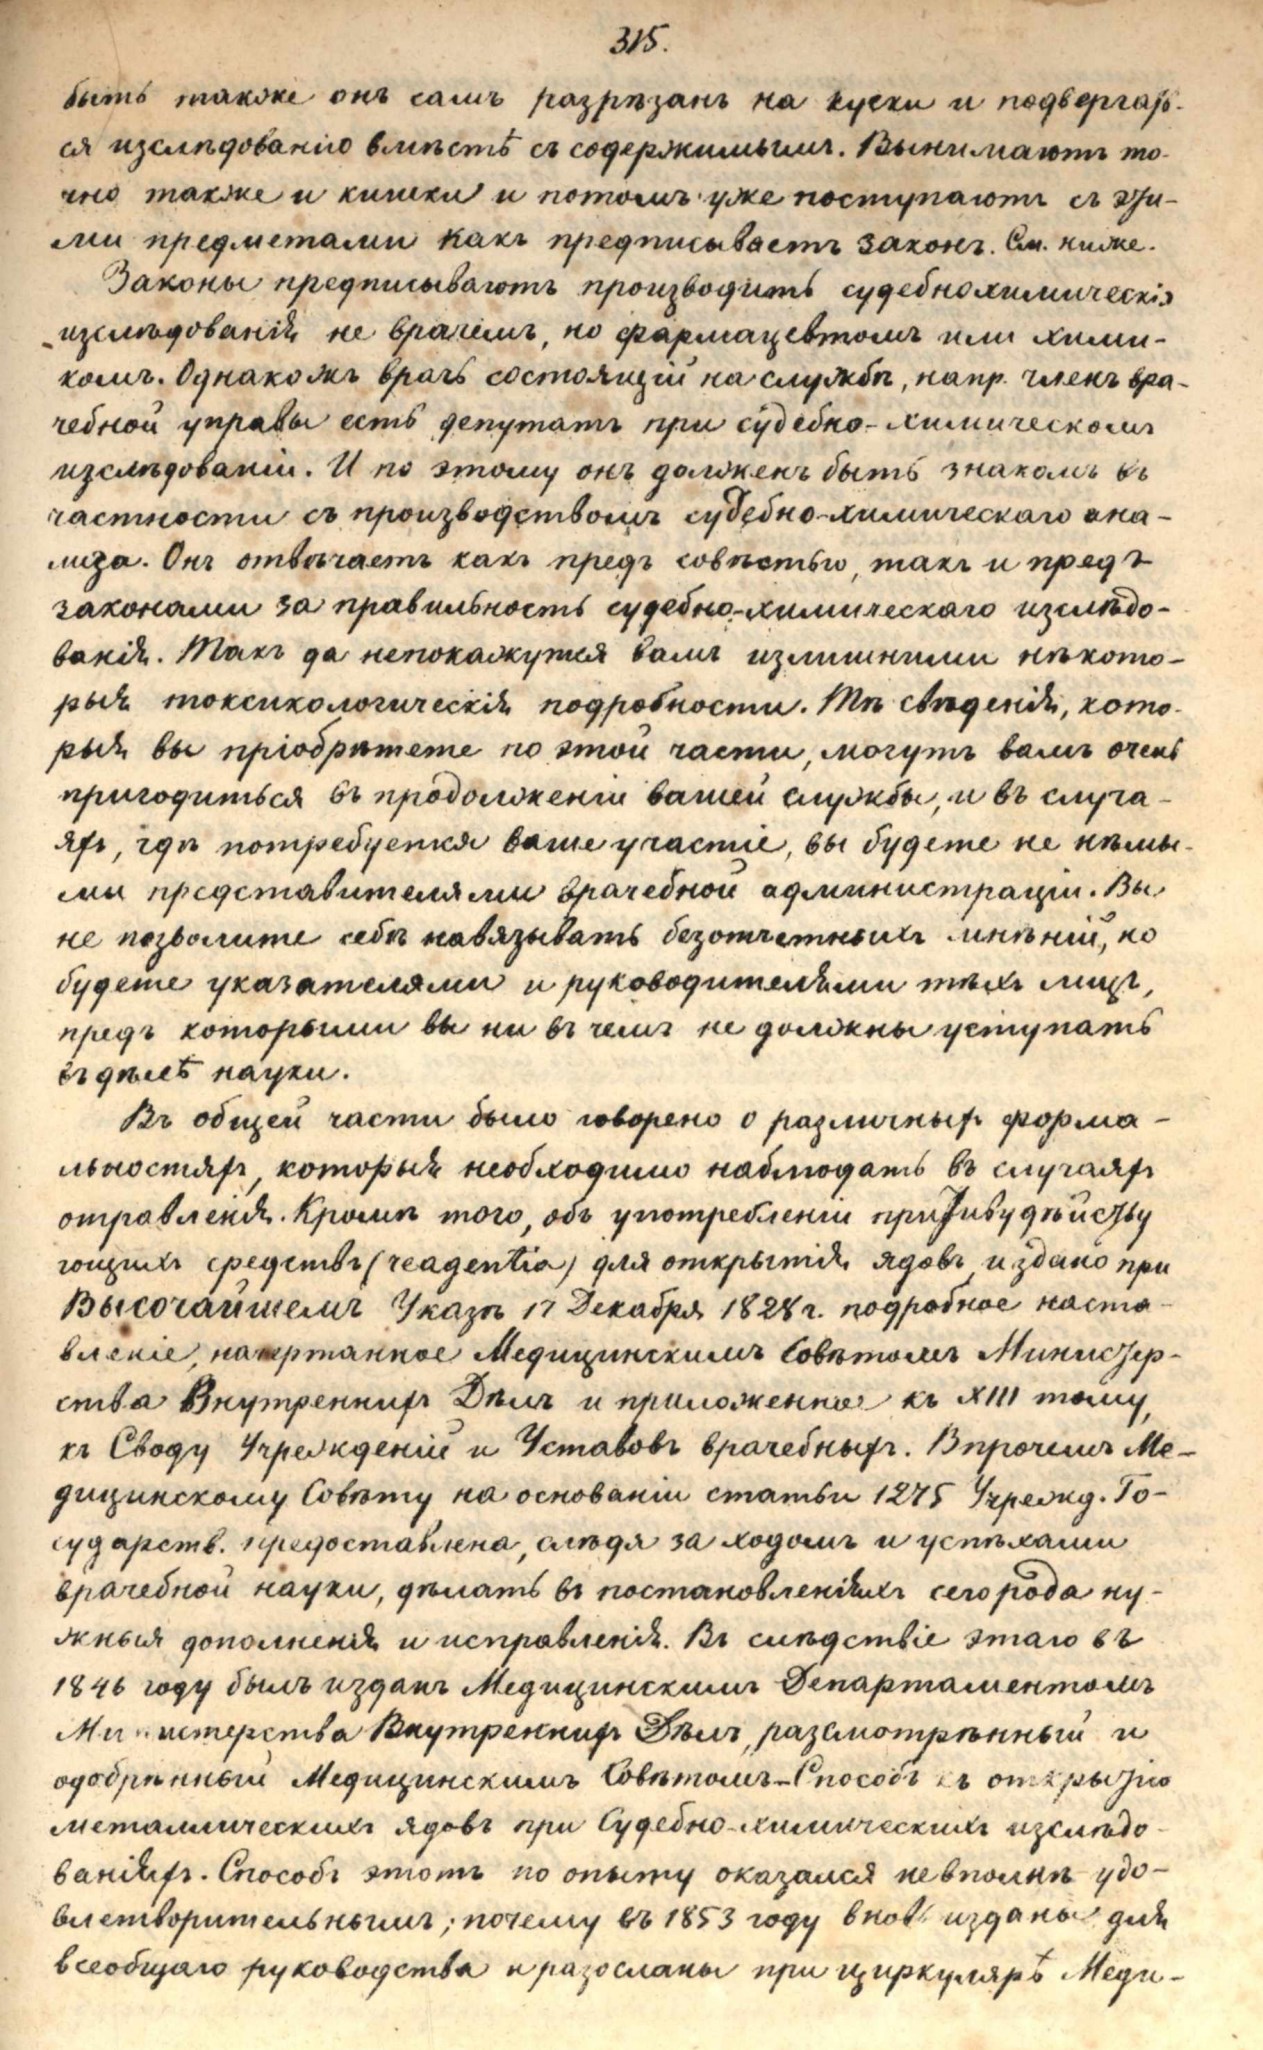 315.
быть также онъ самъ разрѣзанъ на куски и подвергать-
ся изслѣдованію вмѣстѣ съ содержимымъ. Вынимаютъ то-
чно также и кишки и потомъ уже поступаютъ съ эти-
ми предметами какъ предписываетъ законъ. См. ниже.
Законы предписываютъ производить судебнохимическія
изслѣдованія не врачемъ, но фармацевтомъ или хими-
комъ. Однакожъ врачъ состоящій на службѣ, напр. членъ вра-
чебной управы есть депутатъ при судебно-химическомъ
изслѣдованіи. И по этому онъ долженъ быть знакомъ въ
частности съ производствомъ судебно-химическаго ана-
лиза. Онъ отвѣчаетъ какъ предъ совѣстью, такъ и предъ
законами за правильность судебно-химическаго изслѣдо-
ванія. Такъ да непокажутся вамъ излишними нѣкото-
рыя токсикологическія подробности. Тѣ свѣденія, кото-
рыя вы пріобрѣтете по этой части, могутъ вамъ очень
пригодиться въ продолженіи вашей службы, и въ случа-
яхъ, гдѣ потребуется ваше участіе, вы будете не нѣмы-
ми представителями врачебной администраціи. Вы
не позволите себѣ навязывать безотчетныхъ мнѣній, но
будете указателями и руководителями тѣхъ лицъ,
предъ которыми вы ни въ чемъ не должны уступать
въ дѣлѣ науки.
Въ общей части было говорено о различныхъ форма-
льностяхъ, которыя необходимо наблюдать въ случаяхъ
отравленія. Кромѣ того, объ употребленіи противудѣйству
ющихъ средствъ (reagentia) для открытія ядовъ, издано при
Высочайшемъ Указѣ 17 Декабря 1828 г. подробное наста-
вленіе, начертанное Медицинскимъ Совѣтомъ Министер-
ства Внутреннихъ Дѣлъ и приложенное къ XIII тому,
къ Своду Учрежденій и Уставовъ врачебныхъ. Впрочемъ Ме-
дицинскому Совѣту на основаніи статьи 1275 Учрежд. Го-
сударств. предоставлена, слѣдя за ходомъ и успѣхами
врачебной науки, дѣлать въ постановленіяхъ сего рода ну-
жныя дополненія и исправленія. Въ слѣдствіе этаго въ
1846 году былъ изданъ Медицинскимъ Департаментомъ
Министерства Внутреннихъ Дѣлъ, разсмотрѣнный и
одобрѣнный Медицинскимъ Совѣтомъ-Способъ къ открытію
металлическихъ ядовъ при Судебно-химическихъ изслѣдо-
ваніяхъ. Способъ этотъ по опыту оказался невполнѣ удо-
влетворительнымъ; почему въ 1853 году вновь изданы для
всеобщаго руководства и разосланы при циркулярѣ Меди-